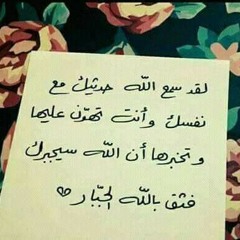 لقد سمع الله حديثك مع
نفسك وأنت تهوّن عليها
وتخبرها أن الله سيجبرك
فثق بالله الجبّار ♡